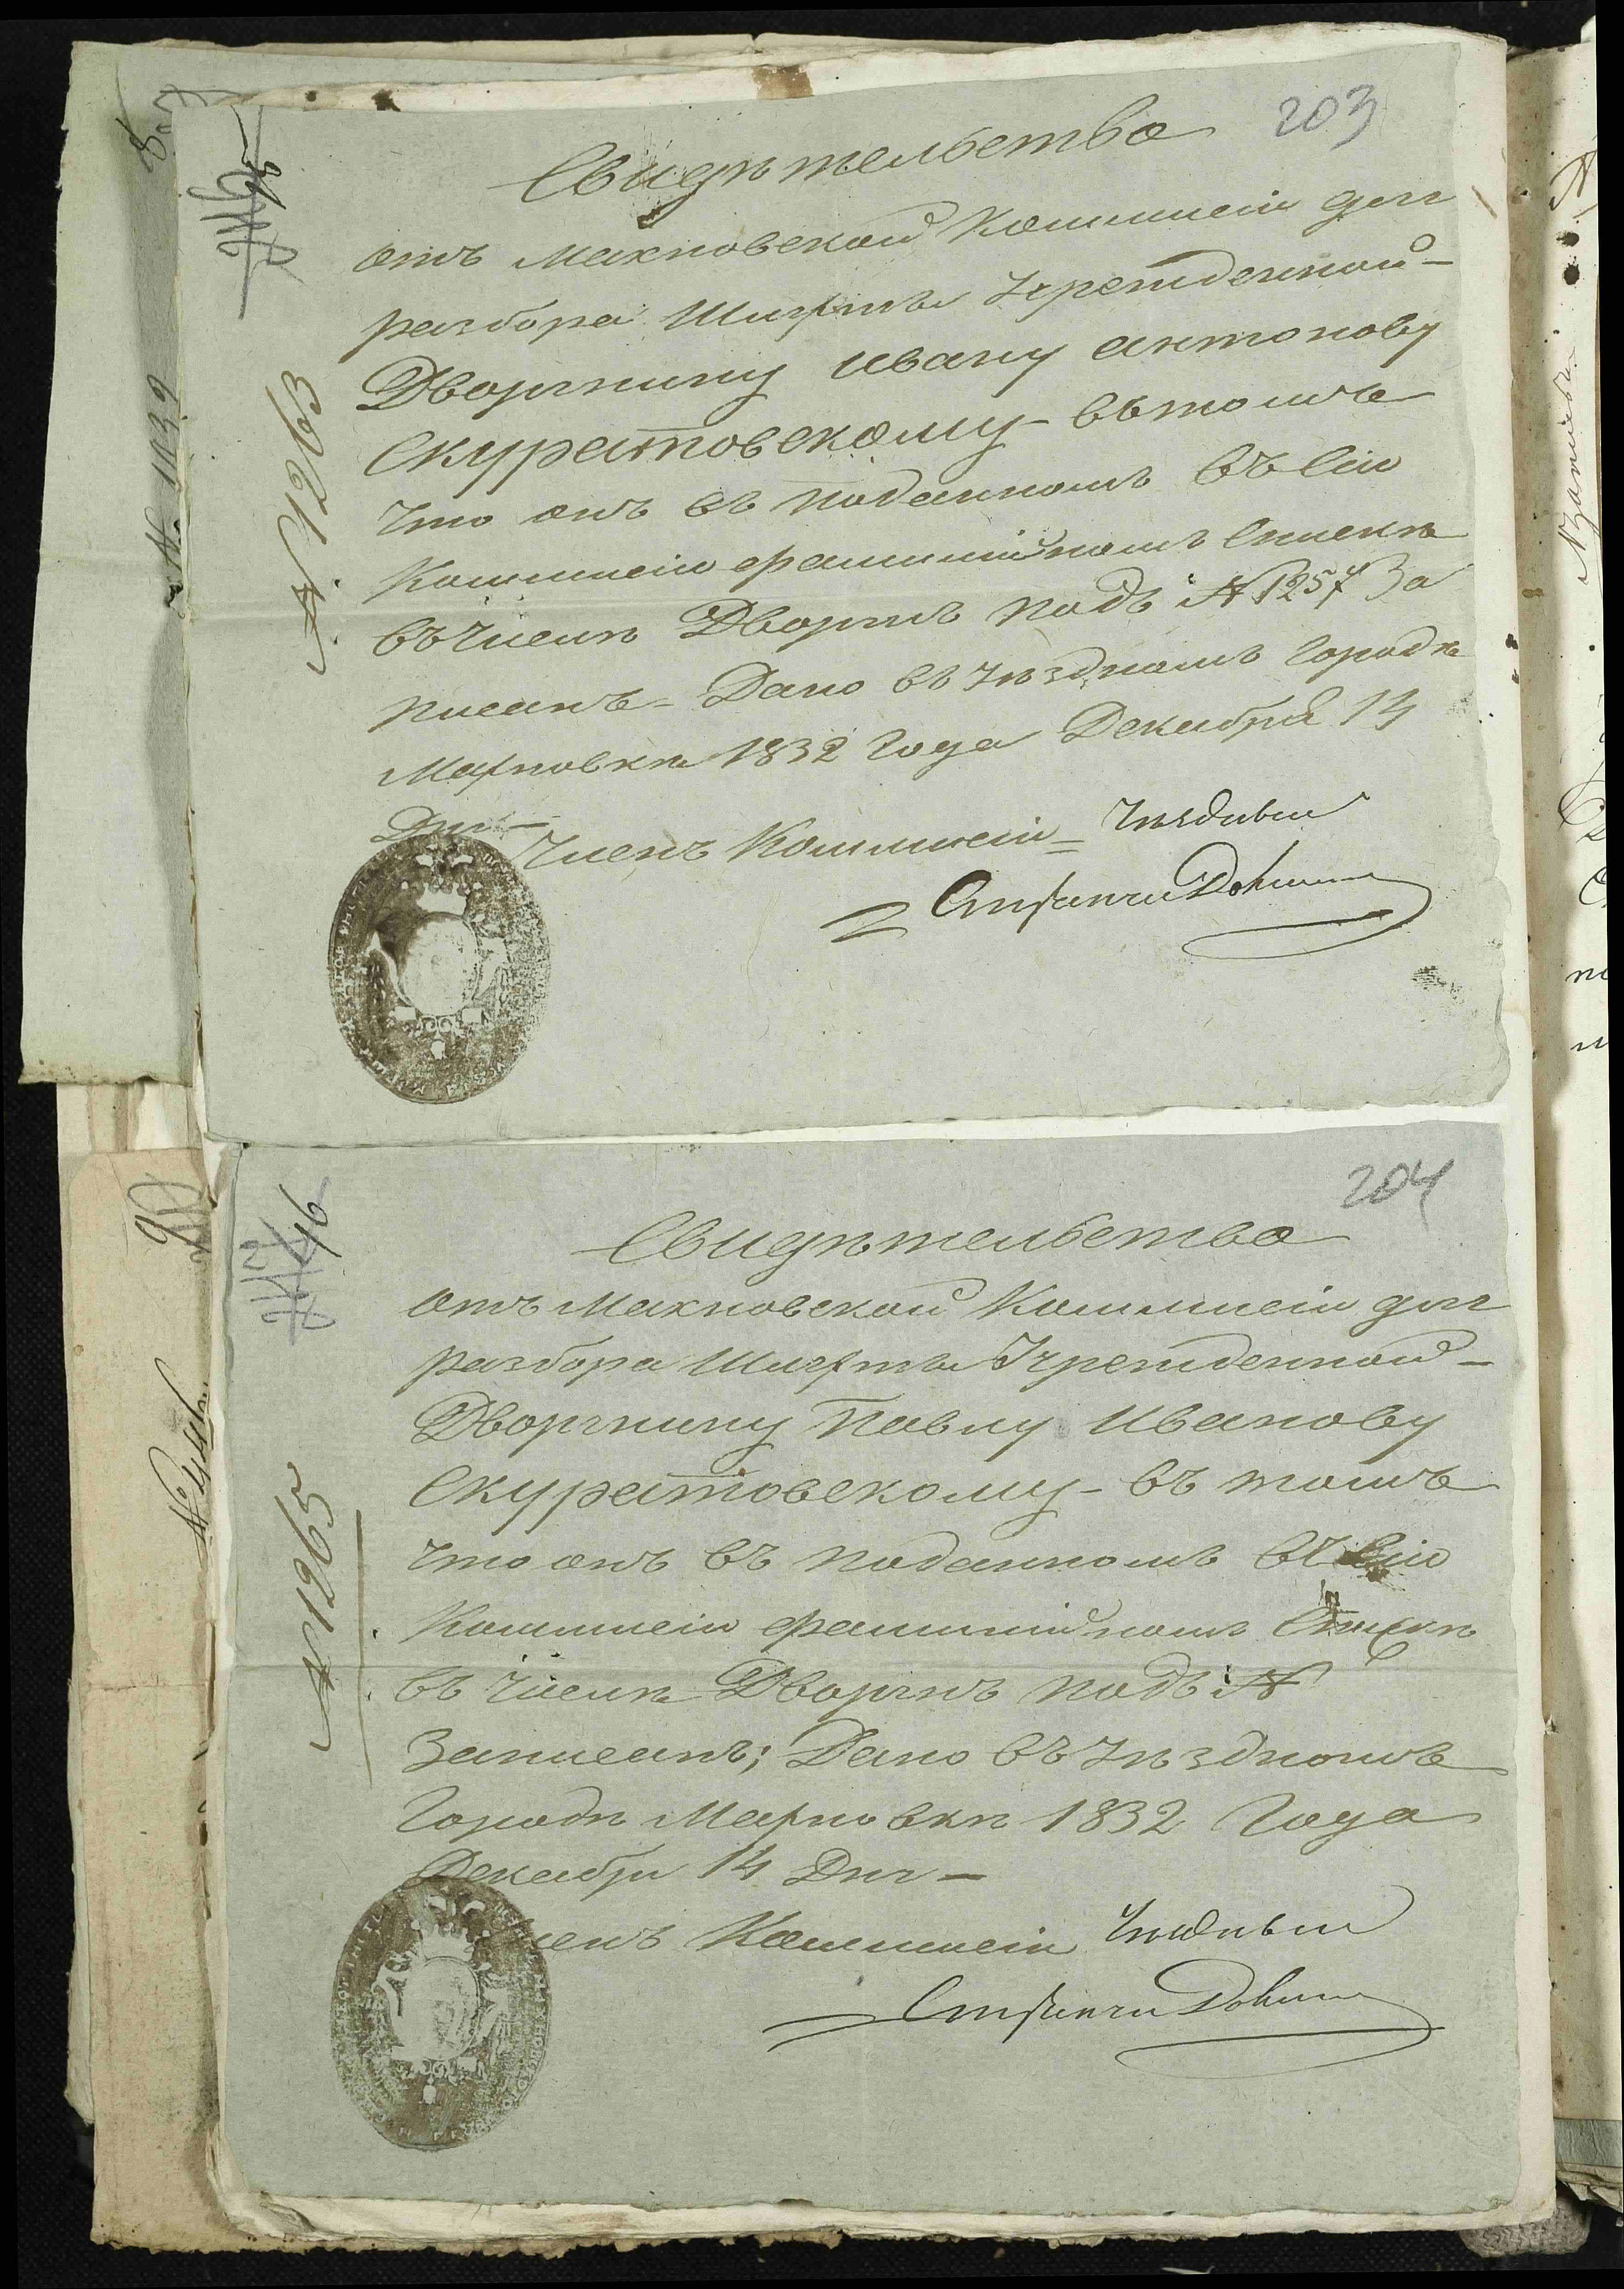 203
Свидѣтельство
отъ Махновской Коммисіи для
разбора Шляхты Учрежденной -
Дворянину Ивану Антонову
Скуратовскому - въ томъ
что онъ въ поданномъ въ Сію
Коммисію фамилійномъ Спискѣ
въ числѣ Дворянъ подъ № 1257 За
писанъ - Дано въ Уѣздномъ Городѣ
Махновкѣ 1832 Года Декабря 14
Дня -
Членъ Коммисіи =
№ 1263
№ 1039
204
Свидѣтельство
отъ Махновской Коммисіи для
разбора Шляхты Учрежденной -
Дворянину Павлу Иванову
Скуратовскому - въ томъ
что онъ въ поданномъ въ Сію
Коммисію фамилійномъ Спискѣ
въ числѣ Дворянъ подъ №
Записанъ; Дано въ Уѣздномъ
Городѣ Махновкѣ 1832 Года
Декабря 14 Дня -
Членъ Коммисіи
№ 1265
46